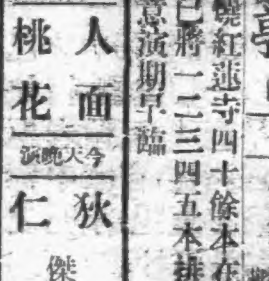 燒紅蓮寺四十餘本在
已將一二三四五本排
意演期早臨
人面
桃花
今天晚演
狄
仁
傑